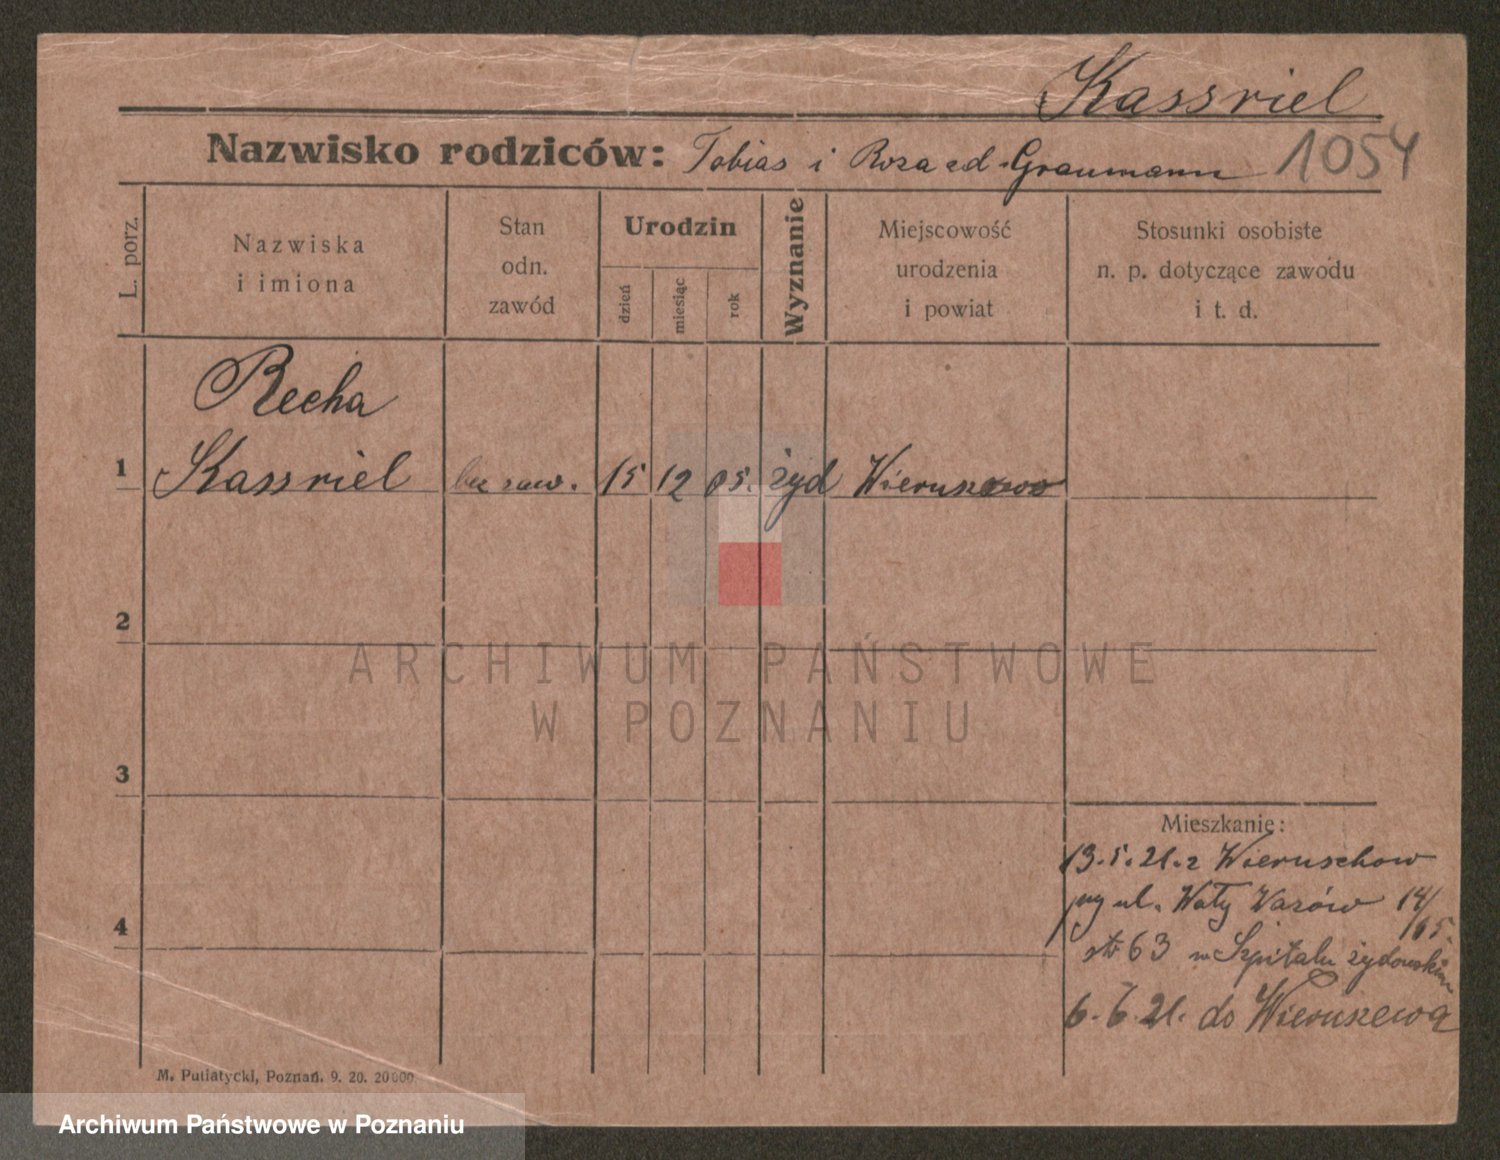 Kassriel
Nazwisko rodziców: Tobias i Roza zd. Graumann 1054
L. porz.
Nazwiska
i imiona
Stan
odn.
zawód
Urodzin
dzień
miesiąc
rok
Wyznanie
Miejscowość
urodzenia
i powiat
Stosunki osobiste
n. p. dotyczące zawodu
i t. d.
Recha
1 Kassriel bez zaw. 15 12 05. żyd Wieruszowo
2
ARCHIWUM PAŃSTWOWE
W POZNANIU
3
Mieszkanie:
13.5.21. z Wieruschow
przy ul. Wały Wazów 14/15.
4
str 63 w Szpitalu żydowskim
6.6.21. do Wieruszewa
M. Putiatycki, Poznań. 9. 20. 20000.
Archiwum Państwowe w Poznaniu